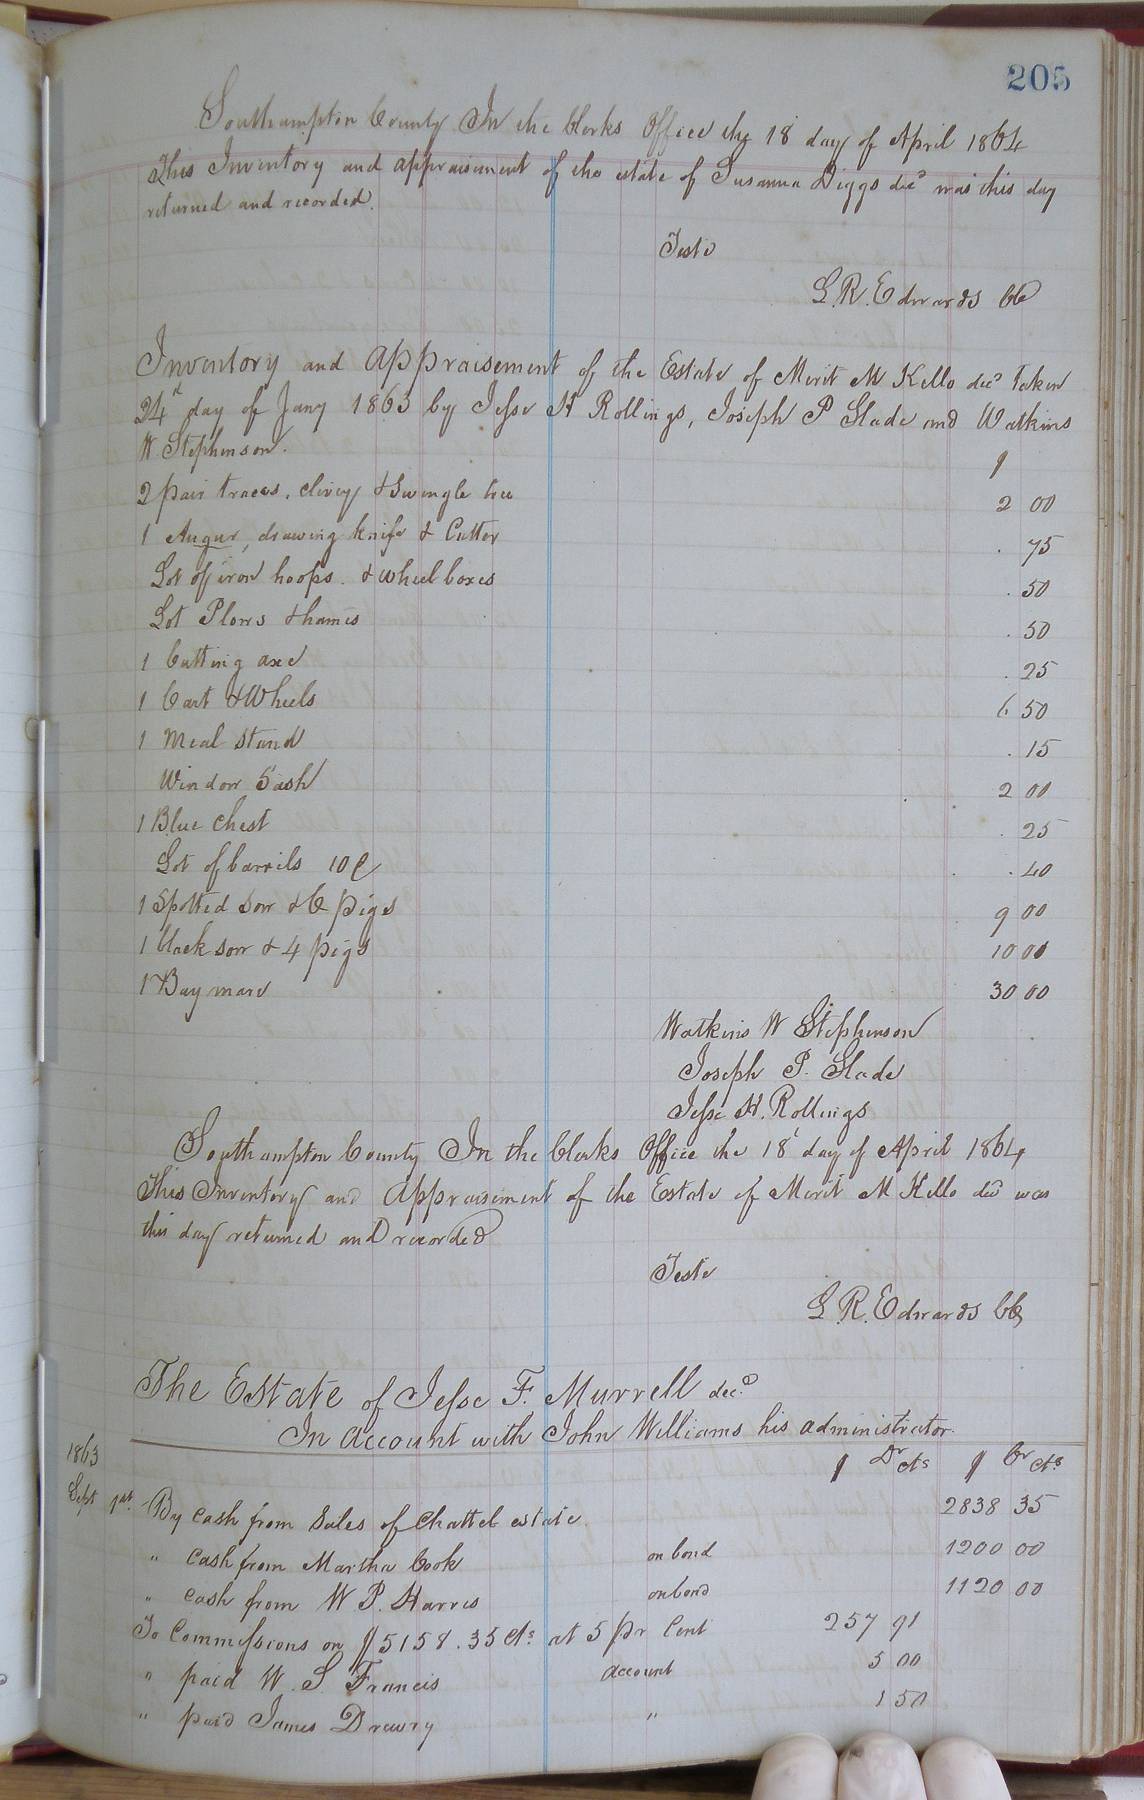 205
Southampton County In the Clerks Office the 18 day of April 1864
This Inventory and appraisement of the estate of Susanna Diggs decd was this day
returned and recorded.
Teste
L. R. Edwards Clk
Inventory and Appraisement of the Estate of Merit M Kello decd taken
24th day of Jany 1863 by Jesse H Rollings, Joseph P Slade and Watkins
W Stephenson.
$
2 pair traces, clivey & swingle tree 2 00
1 Augur, drawing knife & Cutter . 75
Lot of iron hoops. & wheel boxes . 50
Lot Plows & hames . 50
1 Cutting axe . 25
1 Cart & Wheels 6 50
1 Meal stand . 15
Window Sash 2 00
1 Blue Chest . 25
Lot of barrils 10c . 40
1 Spotted sow & 6 pigs 9 00
1 black sow & 4 pigs 10 00
1 Bay mare 30 00
Watkins W Stephenson
Joseph P. Slade
Jesse H. Rollings
Southampton County In the Clerks Office the 18 day of April 1864
This Inventory and Appraisement of the Estate of Merit M Kello decd was
this day returned and recorded
Teste
L. R. Edwards Clk
The Estate of Jesse F. Murrell decd
In Account with John Williams his administrator.
1863 $ Dr cts $ Cr cts
Sept 1st By Cash from Sales of Chattel estate 2838 35
" Cash from Martha Cook on bond 1200 00
" Cash from W P. Harris on bond 1120 00
To Commissions on $5158.35 cts at 5 pr Cent 257 91
" paid W. S. Francis account 5 00
" paid James Drewry " 1 50